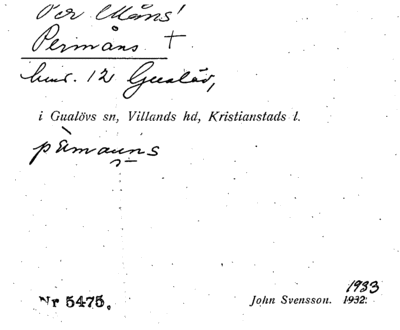 Per Måns'
Permåns +
hmd. 12 Gualöv,
i Gualövs sn, Villands hd, Kristianstads l.
pärmauns
Nr 5475.
1933
John Svensson. 1932.